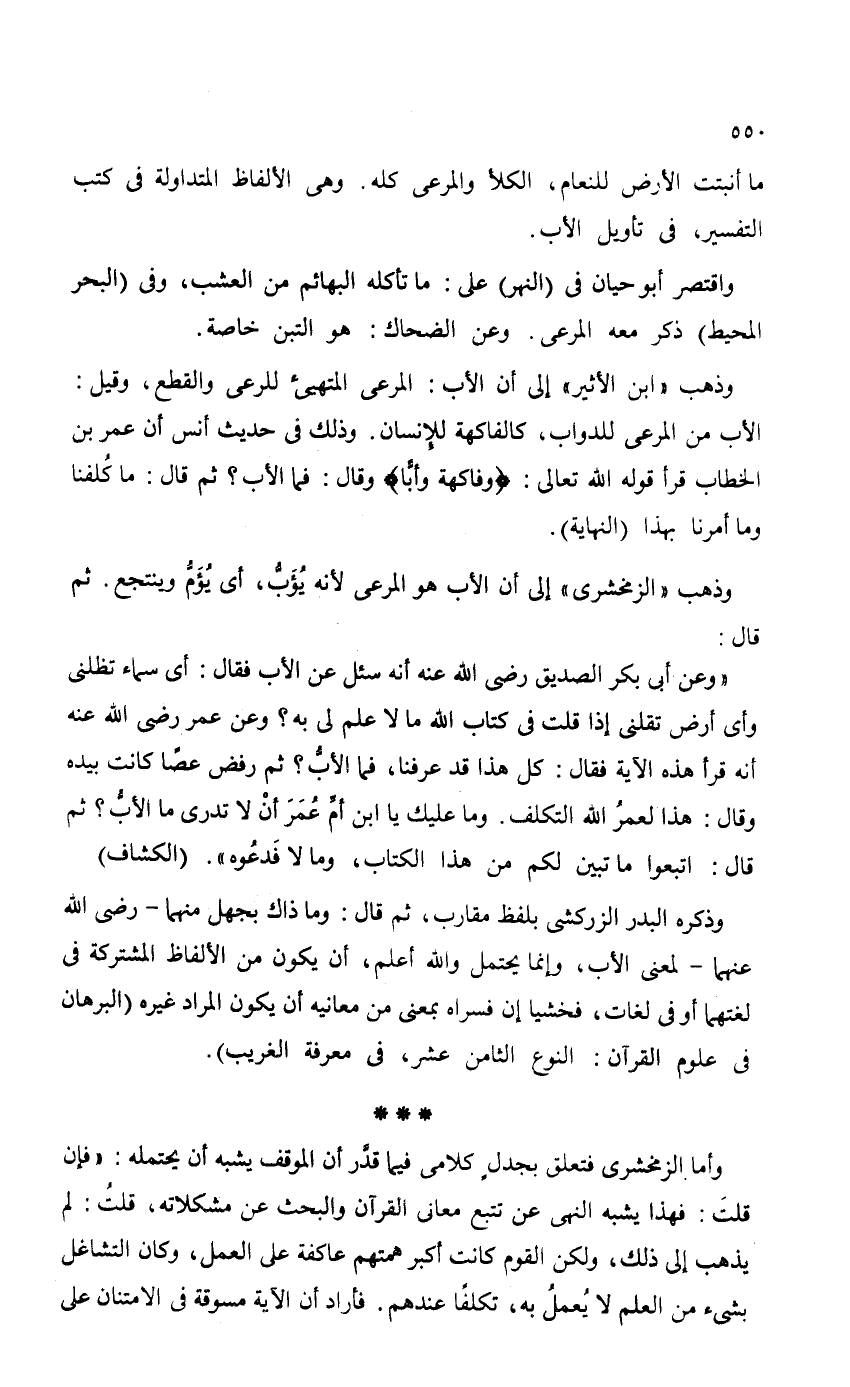 ٥٥٠
ما أنبتت الأرض للنعام، الكلأ والمرعى كله. وهى الألفاظ المتداولة فى كتب
التفسير، فى تأويل الأب.
واقتصر أبو حيان فى (النهر) على : ما تأكله البهائم من العشب، وفى (البحر
المحيط) ذكر معه المرعى. وعن الضحاك : هو التبن خاصة.
وذهب «ابن الأثير» إلى أن الأب : المرعى المتهيئ للرعى والقطع، وقيل :
الأب من المرعى للدواب، كالفاكهة للإنسان. وذلك فى حديث أنس أن عمر بن
الخطاب قرأ قوله الله تعالى : ﴿وفاكهة وأبًّا﴾ وقال : فما الأب؟ ثم قال : ما كُلفنا
وما أمرنا بهذا (النهاية).
وذهب «الزمخشرى» إلى أن الأب هو المرعى لأنه يُؤَبُّ، أى يُؤَمُّ وينتجع. ثم
قال :
«وعن أبى بكر الصديق رضى الله عنه أنه سئل عن الأب فقال : أى سماء تظلنى
وأى أرض تقلنى إذا قلت فى كتاب الله ما لا علم لى به؟ وعن عمر رضى الله عنه
أنه قرأ هذه الآية فقال : كل هذا قد عرفنا، فما الأبُّ؟ ثم رفض عصًا كانت بيده
وقال : هذا لعمرُ الله التكلف. وما عليك يا ابن أمِّ عُمَرَ أنْ لا تدرى ما الأبُّ؟ ثم
قال : اتبعوا ما تبين لكم من هذا الكتاب، وما لا فَدعُوه». (الكشاف)
وذكره البدر الزركشى بلفظ مقارب، ثم قال : وما ذاك بجهل منهما - رضى الله
عنهما - لمعنى الأب، وإنما يحتمل والله أعلم، أن يكون من الألفاظ المشتركة فى
لغتهما أو فى لغات، فخشيا إن فسراه بمعنى من معانيه أن يكون المراد غيره (البرهان
فى علوم القرآن : النوع الثامن عشر، فى معرفة الغريب).
***
وأما الزمخشرى فتعلق بجدلٍ كلامى فيما قدَّر أن الموقف يشبه أن يحتمله : «فإن
قلتَ : فهذا يشبه النهى عن تتبع معانى القرآن والبحث عن مشكلاته، قلتُ : لم
يذهب إلى ذلك، ولكن القوم كانت أكبر همتهم عاكفة على العمل، وكان التشاغل
بشىء من العلم لا يُعملُ به، تكلفًا عندهم. فأراد أن الآية مسوقة فى الامتنان على